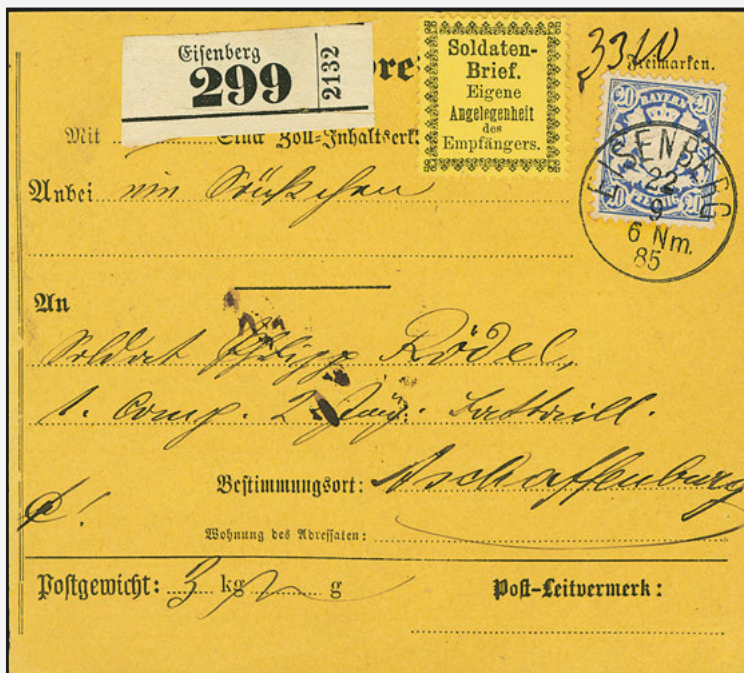 Eisenberg
299
2132
Soldaten-
Brief.
Eigene
Angelegenheit
des
Empfängers.
3310
Freimarken.
20 BAYERN 20
20 PFENNIG 20
EISENBERG
22
9
6 Nm.
85
Mit Stück Zoll-Inhaltserkl.
Anbei ein
An
Soldat Philipp Rödel,
1. Comp. 2. Jäg. Bataill.
Bestimmungsort: Aschaffenburg
Wohnung des Adressaten:
Postgewicht: 3 kg g
Post-Leitvermerk: